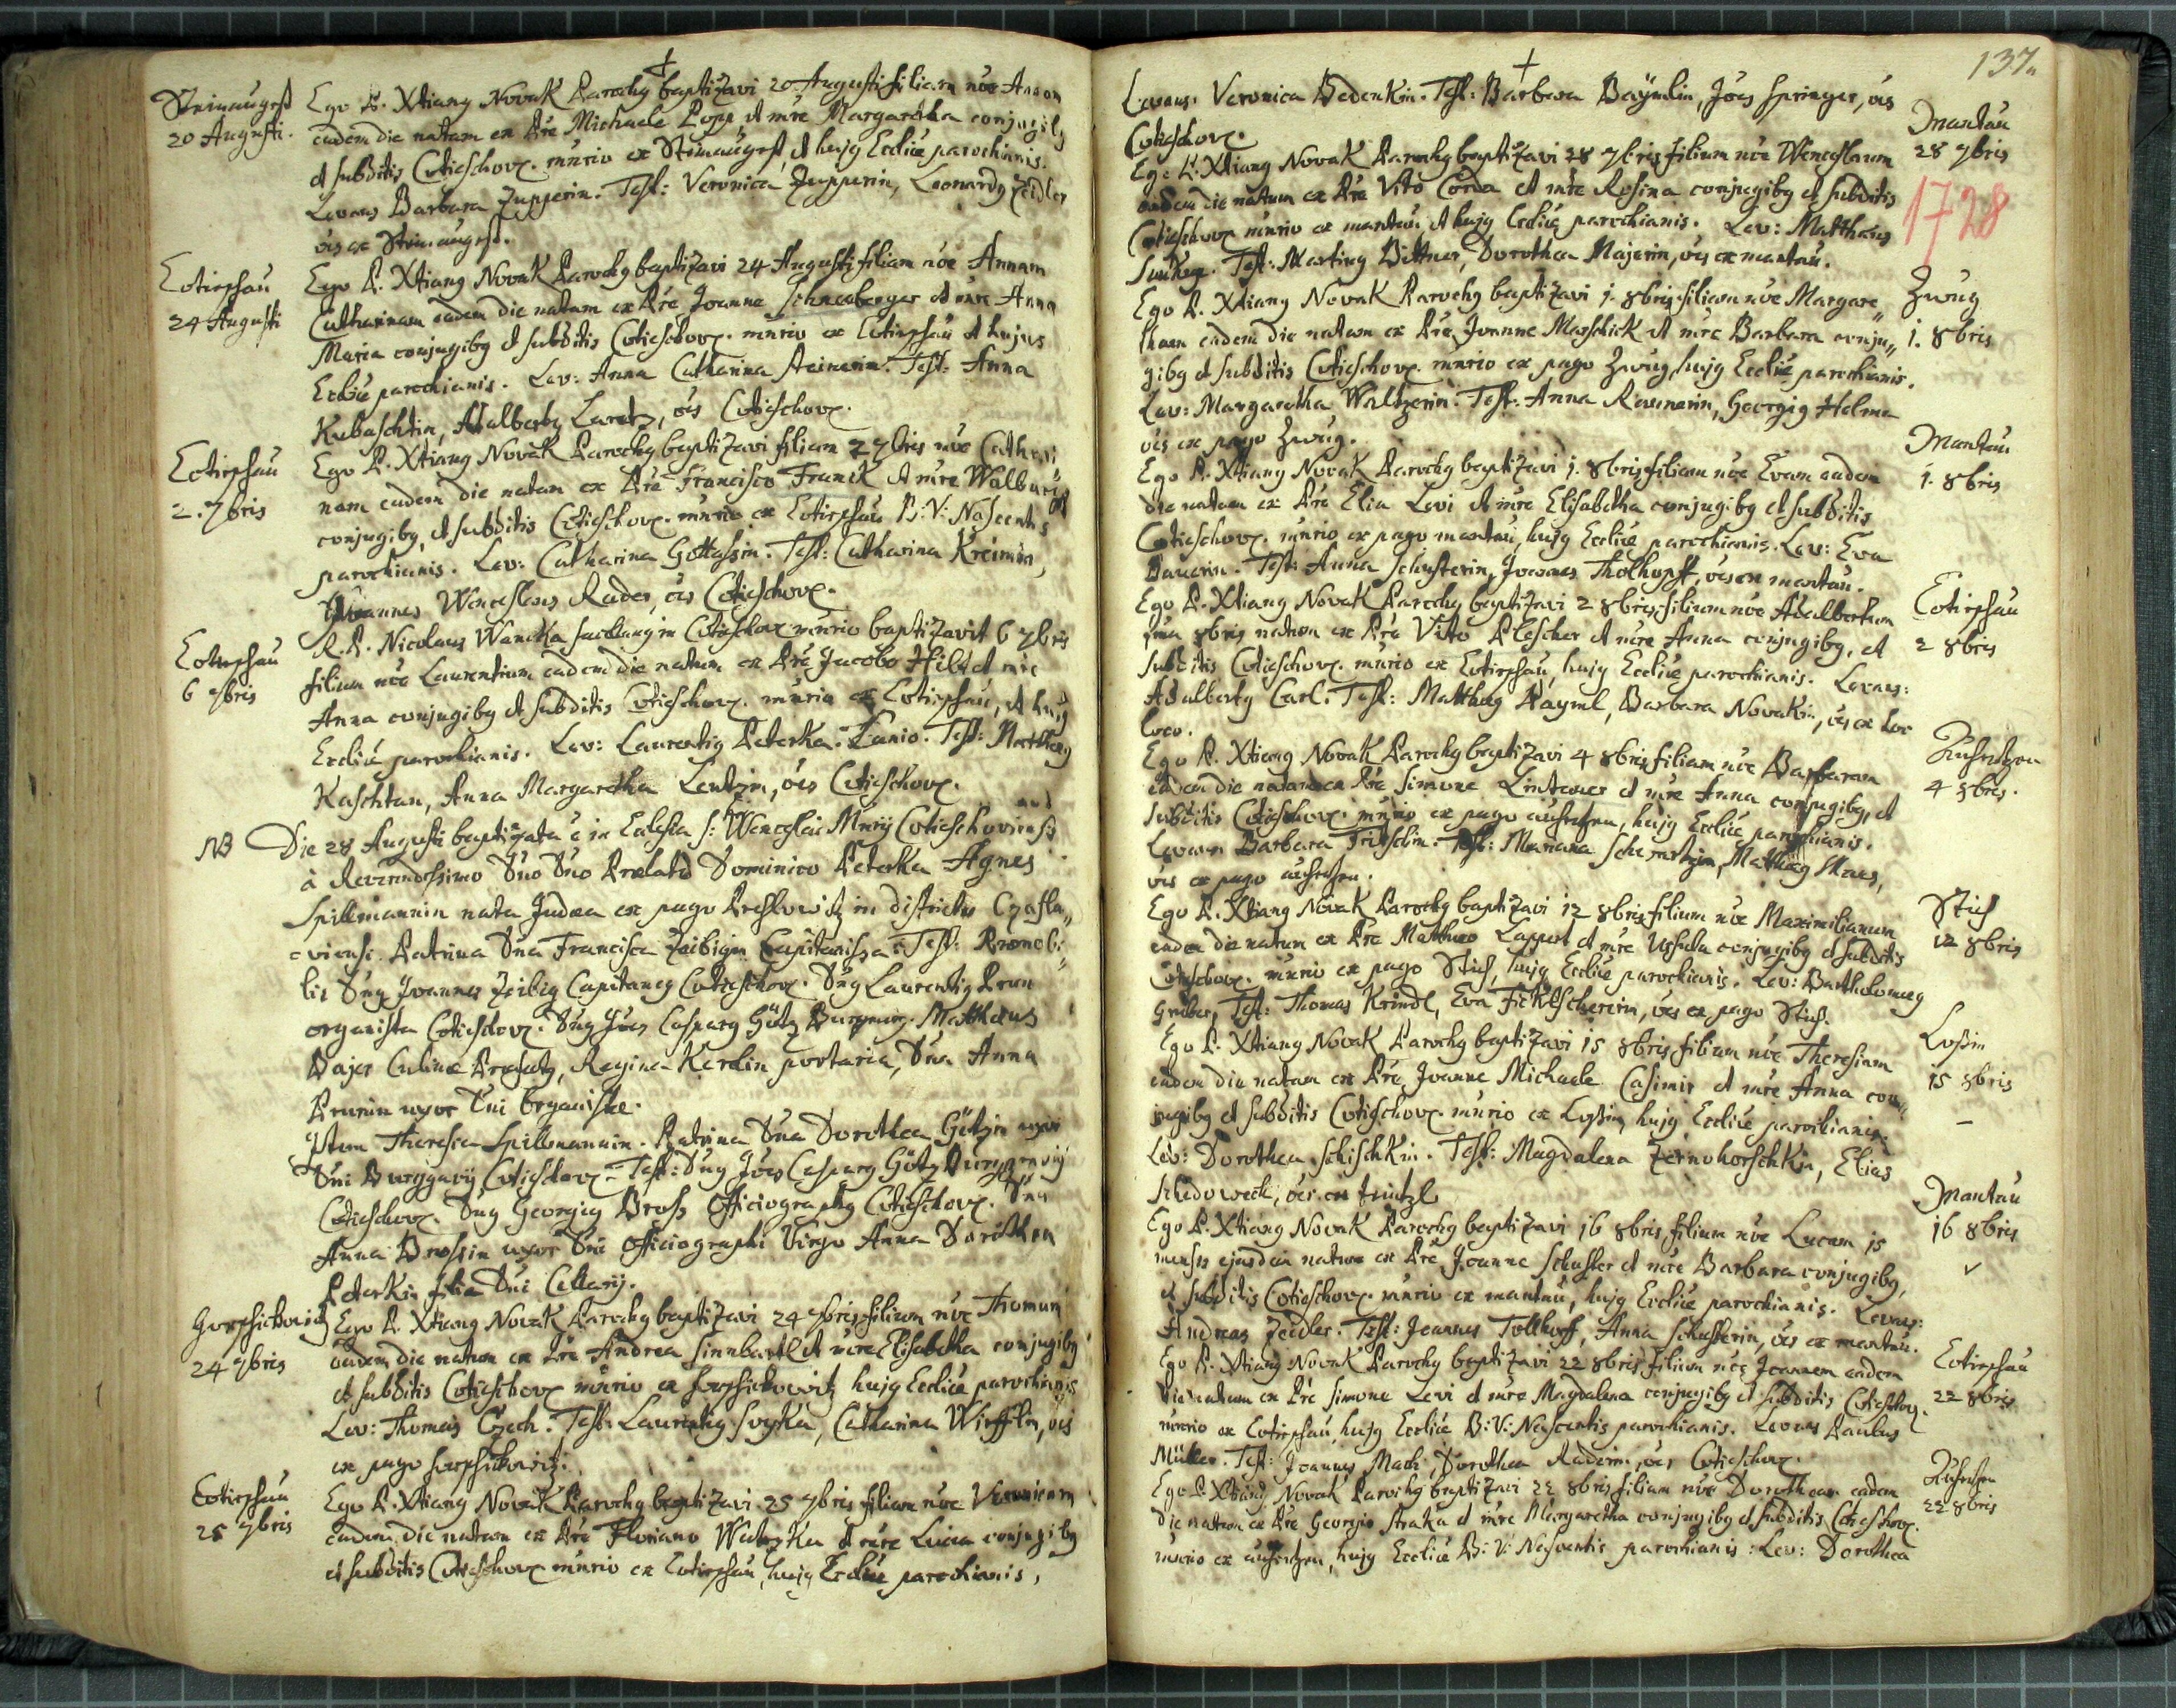 Steinaugest
20 Augusti.
Ego P. Xtiang Novak Parochg baptizavi 20 Augusti filiam nõe Annam
eadem die natam ex Pře Michaele Popp et mře Margaretha conjugibg
et subditis Cotieschov. mũrio ex Steinaugest, et hujg Ecclīē parochianis.
Levans Barbara Zupperin. Test: Veronica Zupperin, Leonardg Zeidler
ões ex Steinaugest.
Cotieschau
24 Augusti
Ego P. Xtiang Novak Parochg baptizavi 24 Augusti filiam nõe Annam
Catharinam eadem die natam ex Pře Joanne Schneeberger et mře Anna
Maria conjugibg et subditis Cotieschov. mũrio ex Cotieschau et hujus
Ecclīē parochianis. Lev: Anna Catharina Steinerin. Test: Anna
Kubaschtin, Adalbertg Laretz, ões Cotieschov.
Cotieschau
2. 7bris
Ego P. Xtiang Novak Parochg baptizavi filiam 2 7bris nõe Cathari„
nam eadem die natam ex Pře Francisco Franck et mře Walburga
conjugibg, et subditis Cotieschov. mũrio ex Cotieschau B: V: Nascentis
parochianis. Lev: Catharina Gottassin. Test: Catharina Kreimin,
Joannes Wenceslaus Rader, ões Cotieschov.
Cotieschau
6 7bris
R. P. Nicolaus Wancka sacellang in Cotieschov mũrio baptizavit 6 7bris
filium nõe Laurentium eadem die natum ex Pře Jacobo Hilbt et mře
Anna conjugibg et subditis Cotieschov. mũrio ex Cotieschau, et hujg
Ecclīē parochianis. Lev: Laurentig Peterka. Lanio. Test: Mattheg
Kaschtan, Anna Margaretha Lentzin, ões Cotieschov.
NB Die 28 Augusti baptizata ē in Ecclesia S: Wenceslai Mrĩs Cotieschoviensis
à Reverendissimo Dño Dño Praelato Dominico Peterka Agnes
Spillmannin nata Judaea ex pago Preslowitz in districtu Czasla„
viensi. Patrina Dña Francisca Zeibigin Capitanissa. Test: Prænobi„
lis Dñg Joannes Zeibig Capitaneg Cotieschov. Dñg Laurentig Prun
organista Cotieschov. Dñg Jões Casparg Götz Burgravig. Matthaeus
Bajer Culinae Præfectg, Regina Kerlin portaria, Dña Anna
Prunin uxor Dñi Organistæ.
Item Theresia Spillmannin. Patrina Dña Dorothea Götzin uxor
Dñi Burggravij Cotieschov. Test: Dñg Jões Casparg Götz Burggravig
Cotieschov. Dñg Georgig Bross Officiographg Cotieschov. Dña
Anna Brossin uxor Dñi Officiographi Virgo Anna Dorothea
Peterkin filia Dñi Cellarij.
24 7bris
Ego P. Xtiang Novak Parochg baptizavi 24 7bris filium nõe Thomam
eadem die natum ex Pře Andrea Sinnbartl et mře Elisabetha conjugibg
et subditis Cotieschov mũrio ex hujg Ecclīē parochianis
Lev: Thomas Czech. Test: Laurentig Svyska, Catharina Wirfflin, ões
ex pago
Cotieschau
25 7bris
Ego P. Xtiang Novak Parochg baptizavi 25 7bris filiam nõe Veronicam
eadem die natam ex Pře Floriano Watzka et mře Lucia conjugibg
et subditis Cotieschov mũrio ex Cotieschau, hujg Ecclīē parochianis,
137
Levans: Veronica Bedenkin. Test: Barbara Baÿmlin, Jões Springer, ões
Cotieschov.
Mantau
28 7bris
1728
Ego P. Xtiang Novak Parochg baptizavi 28 7bris filium nõe Wenceslaum
eadem die natum ex Pře Vito Corda et mře Rosina conjugibg et subditis
Cotieschov mũrio ex mantau, et hujg Ecclīē parochianis. Lev: Matthaeus
Test: Marting Bittner, Dorothea Majerin, ões ex mantau.
Zwug
1. 8bris
Ego P. Xtiang Novak Parochg baptizavi 1. 8bris filiam nõe Margare„
tham eadem die natam ex Pře Joanne Maschick et mře Barbara conju„
gibg et subditis Cotieschov. mũrio ex pago Zwug, hujg Ecclīē parochianis.
Lev: Margaretha Waltzerin. Test: Anna Raumerin, Georgig Helma
ões ex pago Zwug.
Mantau
1. 8bris
Ego P. Xtiang Novak Parochg baptizavi 1. 8bris filiam nõe Evam eadem
die natam ex Pře Elia Levi et mře Elisabetha conjugibg et subditis
Cotieschov. mũrio ex pago mantau, hujg Ecclīē parochianis. Lev: Eva
Bauerin. Test: Anna Schusterin, Joannes Tholhopff, ões ex mantau.
Cotieschau
2 8bris
Ego P. Xtiang Novak Parochg baptizavi 2 8bris filium nõe Adalbertum
1ma 8bris natum ex Pře Vito Plescher et mře Anna conjugibg, et
subditis Cotieschov. mũrio ex Cotieschau, hujg Ecclīē parochianis. Levans:
Adalbertg Carl. Test: Mattheg Kayml, Barbara Novakin, ões ex hoc
loco.
4 8bris.
Ego P. Xtiang Novak Parochg baptizavi 4 8bris filiam nõe Barbaram
eadem die natam ex Pře Simone Lintauer et mře Anna conjugibg, et
subditis Cotieschov. mũrio ex pago hujg Ecclīē parochianis.
Levans Barbara Tritschlin. Test: Mariana Mattheg Maus,
ões ex pago
Stich
12 8bris
Ego P. Xtiang Novak Parochg baptizavi 12 8bris filium nõe Maximilianum
eadem die natum ex Pře Mattheo Lappert et mře Ursula conjugibg et subditis
Cotieschov. mũrio ex pago Stich, hujg Ecclīē parochianis. Lev: Bartholomeg
Gruber, Test: Thomas Krindl, Eva Ficktscherin, ões ex pago Stich.
Lossin
15 8bris
Ego P. Xtiang Novak Parochg baptizavi 15 8bris filiam nõe Theresiam
eadem die natam ex Pře Joanne Michaele Casimir et mře Anna con„
jugibg et subditis Cotieschov. mũrio ex Lossin, hujg Ecclīē parochianis.
Lev: Dorothea Schischkin. Test: Magdalena Zernohorschkin, Elias
Schidoweck, ões ex
Mantau
16 8bris
Ego P. Xtiang Novak Parochg baptizavi 16 8bris filium nõe Lucam 15
mensis ejusdem natum ex Pře Joanne Schuster et mře Barbara conjugibg,
et subditis Cotieschov. mũrio ex mantau, hujg Ecclīē parochianis. Levans:
Andreas Zeidler. Test: Joannes Tollhoff, Anna Schusterin, ões ex mantau.
Cotieschau
22 8bris
Ego P. Xtiang Novak Parochg baptizavi 22 8bris filium nõe Joannem eadem
die natum ex Pře Simone Levi et mře Magdalena conjugibg et subditis Cotieschov.
mũrio ex Cotieschau, hujg Ecclīē B: V: Nascentis parochianis. Levans Paulus
Müller. Test: Joannes Mach, Dorothea Raderin, ões Cotieschov.
22 8bris
Ego P. Xtiang Novak Parochg baptizavi 22 8bris filiam nõe Dorotheam eadem
die natam ex Pře Georgio Straka et mře Margaretha conjugibg et subditis Cotieschov.
mũrio ex hujg Ecclīē B: V: Nascentis parochianis: Lev: Dorothea